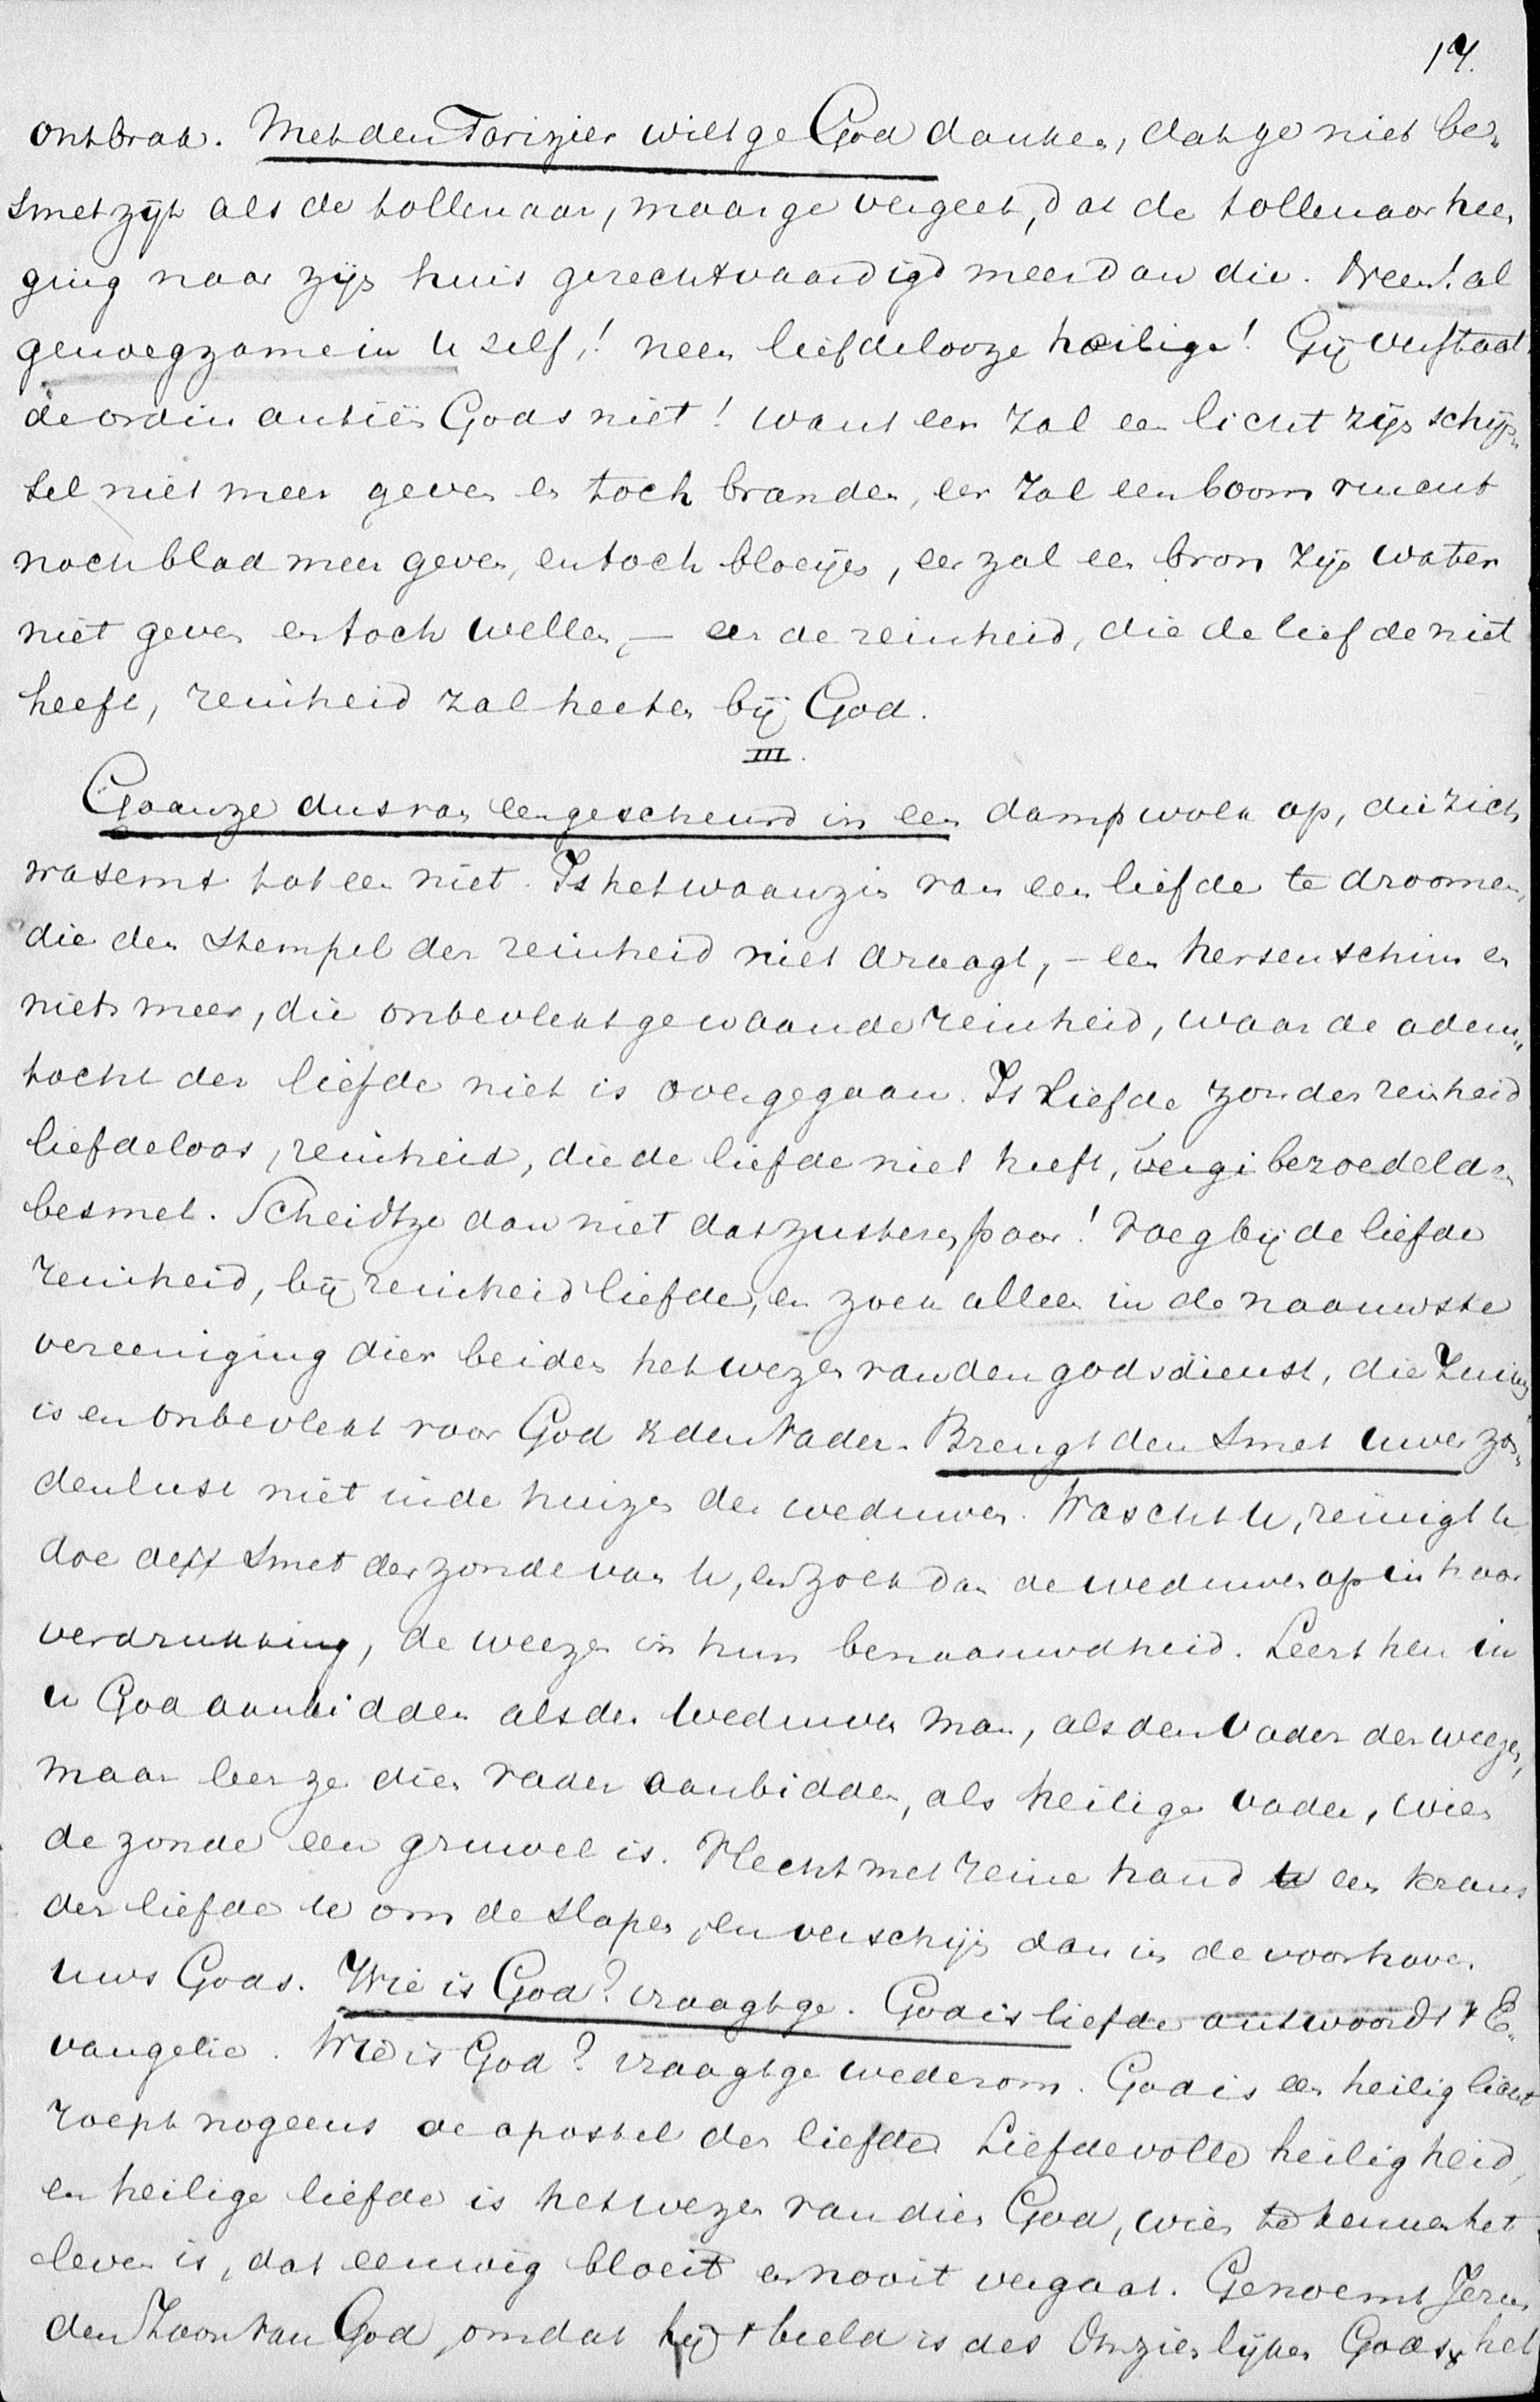 17.
ontbrak. Met den Farizier wilt ge God danken, dat ge niet be„
smet zijt als de tollenaar, maar ge vergeet, dat de tollenaar heen
ging naar zijn huis gerechtvaardigd meer dan die. Neen! al
genoegzame in U self,! neen liefdelooze heilige! Gij verstaat
de ordinantiën Gods niet! want eer zal een licht zijn schijn„
sel niet meer geven en toch branden, eer zal een boom vrucht
noch blad meer geven, en toch bloeijen, eer zal een bron zijn water
niet geven en toch wellen, – eer de reinheid, die de liefde niet
heeft, reinheid zal heeten bij God.
III.
Gaan ze dus van een gescheurd in een dampwolk op, die zich
wasemt tot een niet. Is het waanzin van een liefde te droomen,
die den stempel der reinheid niet draagt, – een hersenschim en
niets meer, die onbevlekt gewaande reinheid, waar de adem„
tocht der liefde niet is overgegaan. Is Liefde zonder reinheid
liefdeloos, reinheid, die de liefde niet heeft, bezoedeld en
besmet. Scheidt ze dan niet dat zusterenpaar! voeg bij de liefde
reinheid, bij reinheid liefde, en zoek alleen in de naauwste
vereeniging dier beiden het wezen van den godsdienst, die zuiver
is en onbevlekt voor God & den Vader. Brengt den smet uwer zon„
denlust niet in de huizen der weduwen. Wascht U, reinigt U
doe den smet der zonde van U, en zoek dan de weduwen op in haar
verdrukking, de weezen in hun benaauwdheid. Leert hen in
u God aanbidden als der weduwen man, als den Vader der weezen,
maar leer ze dien Vader aanbidden, als heilige vader, wien
de zonde een gruwel is. Vlecht met reine hand een krans
der liefde U om de slapen, en verschijn dan in de voorhoven
uws Gods. Wie is God? vraagt ge. God is liefde antwoordt 't E„
vangelie. Wie is God? vraagt ge wederom. God is een heilig licht
roept nogeens de apostel der liefde. Liefdevolle heiligheid,
en heilige liefde is het wezen van dien God, wien te kennen het
leven is, dat eeuwig bloeit en nooit vergaat. Genoemt Jezus
den Zoon van God, omdat hij 't beeld is des Onzienlijken Gods, het